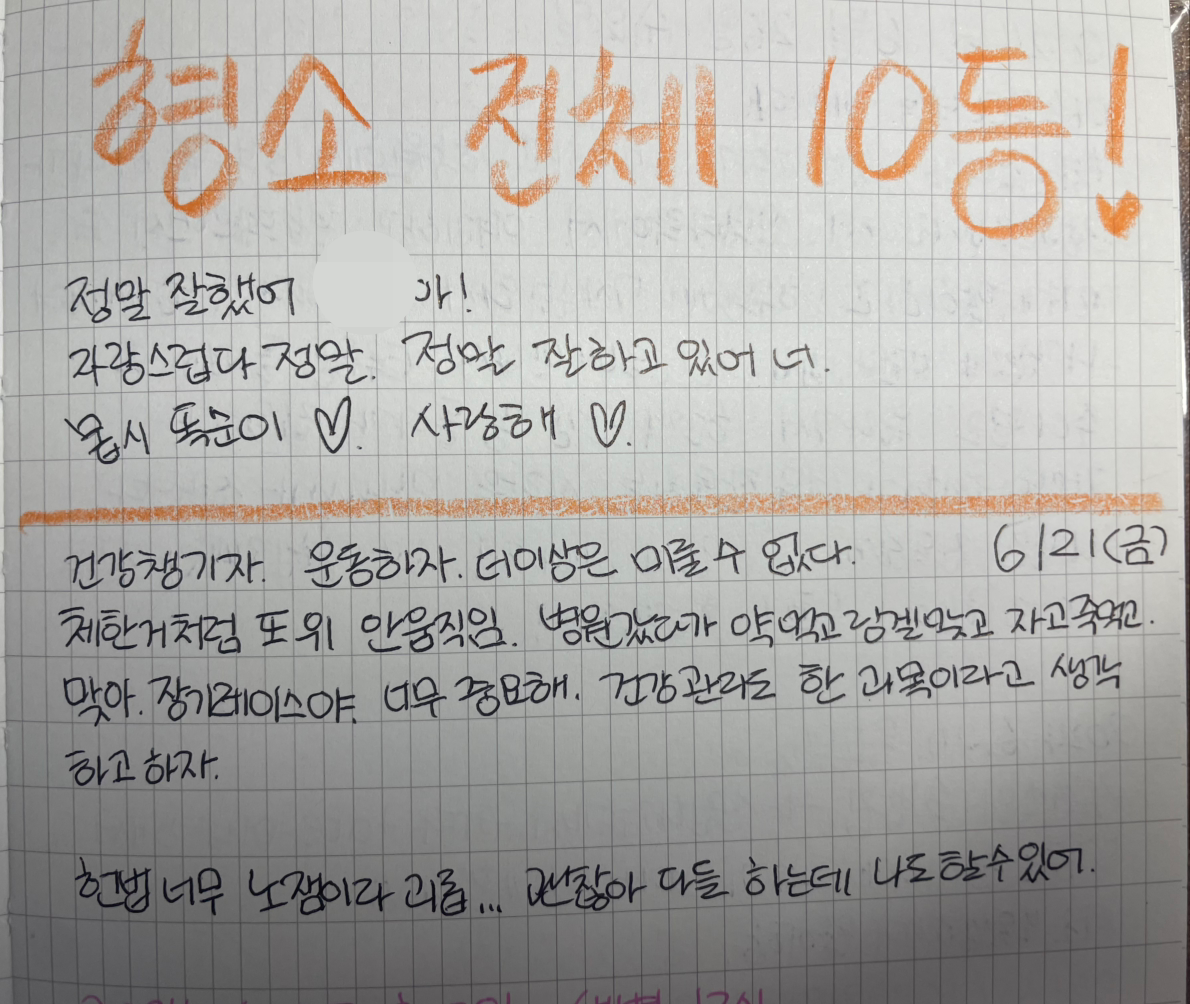 형소 전체 10등!
정말 잘했어 아!
자랑스럽다 정말. 정말 잘하고 있어 너.
몹시 똑순이 ♡. 사랑해 ♡.
6/21(금)
건강챙기자. 운동하자. 더이상은 미룰 수 없다.
체한거처럼 또 위 안움직임. 병원갔다가 약먹고 링겔맞고 자고죽먹고.
맞아. 장기레이스야. 너무 중요해. 건강관리도 한 과목이라고 생각
하고하자.
헌법 너무 노잼이라 괴롭... 괜찮아 다들 하는데 나도 할수있어.